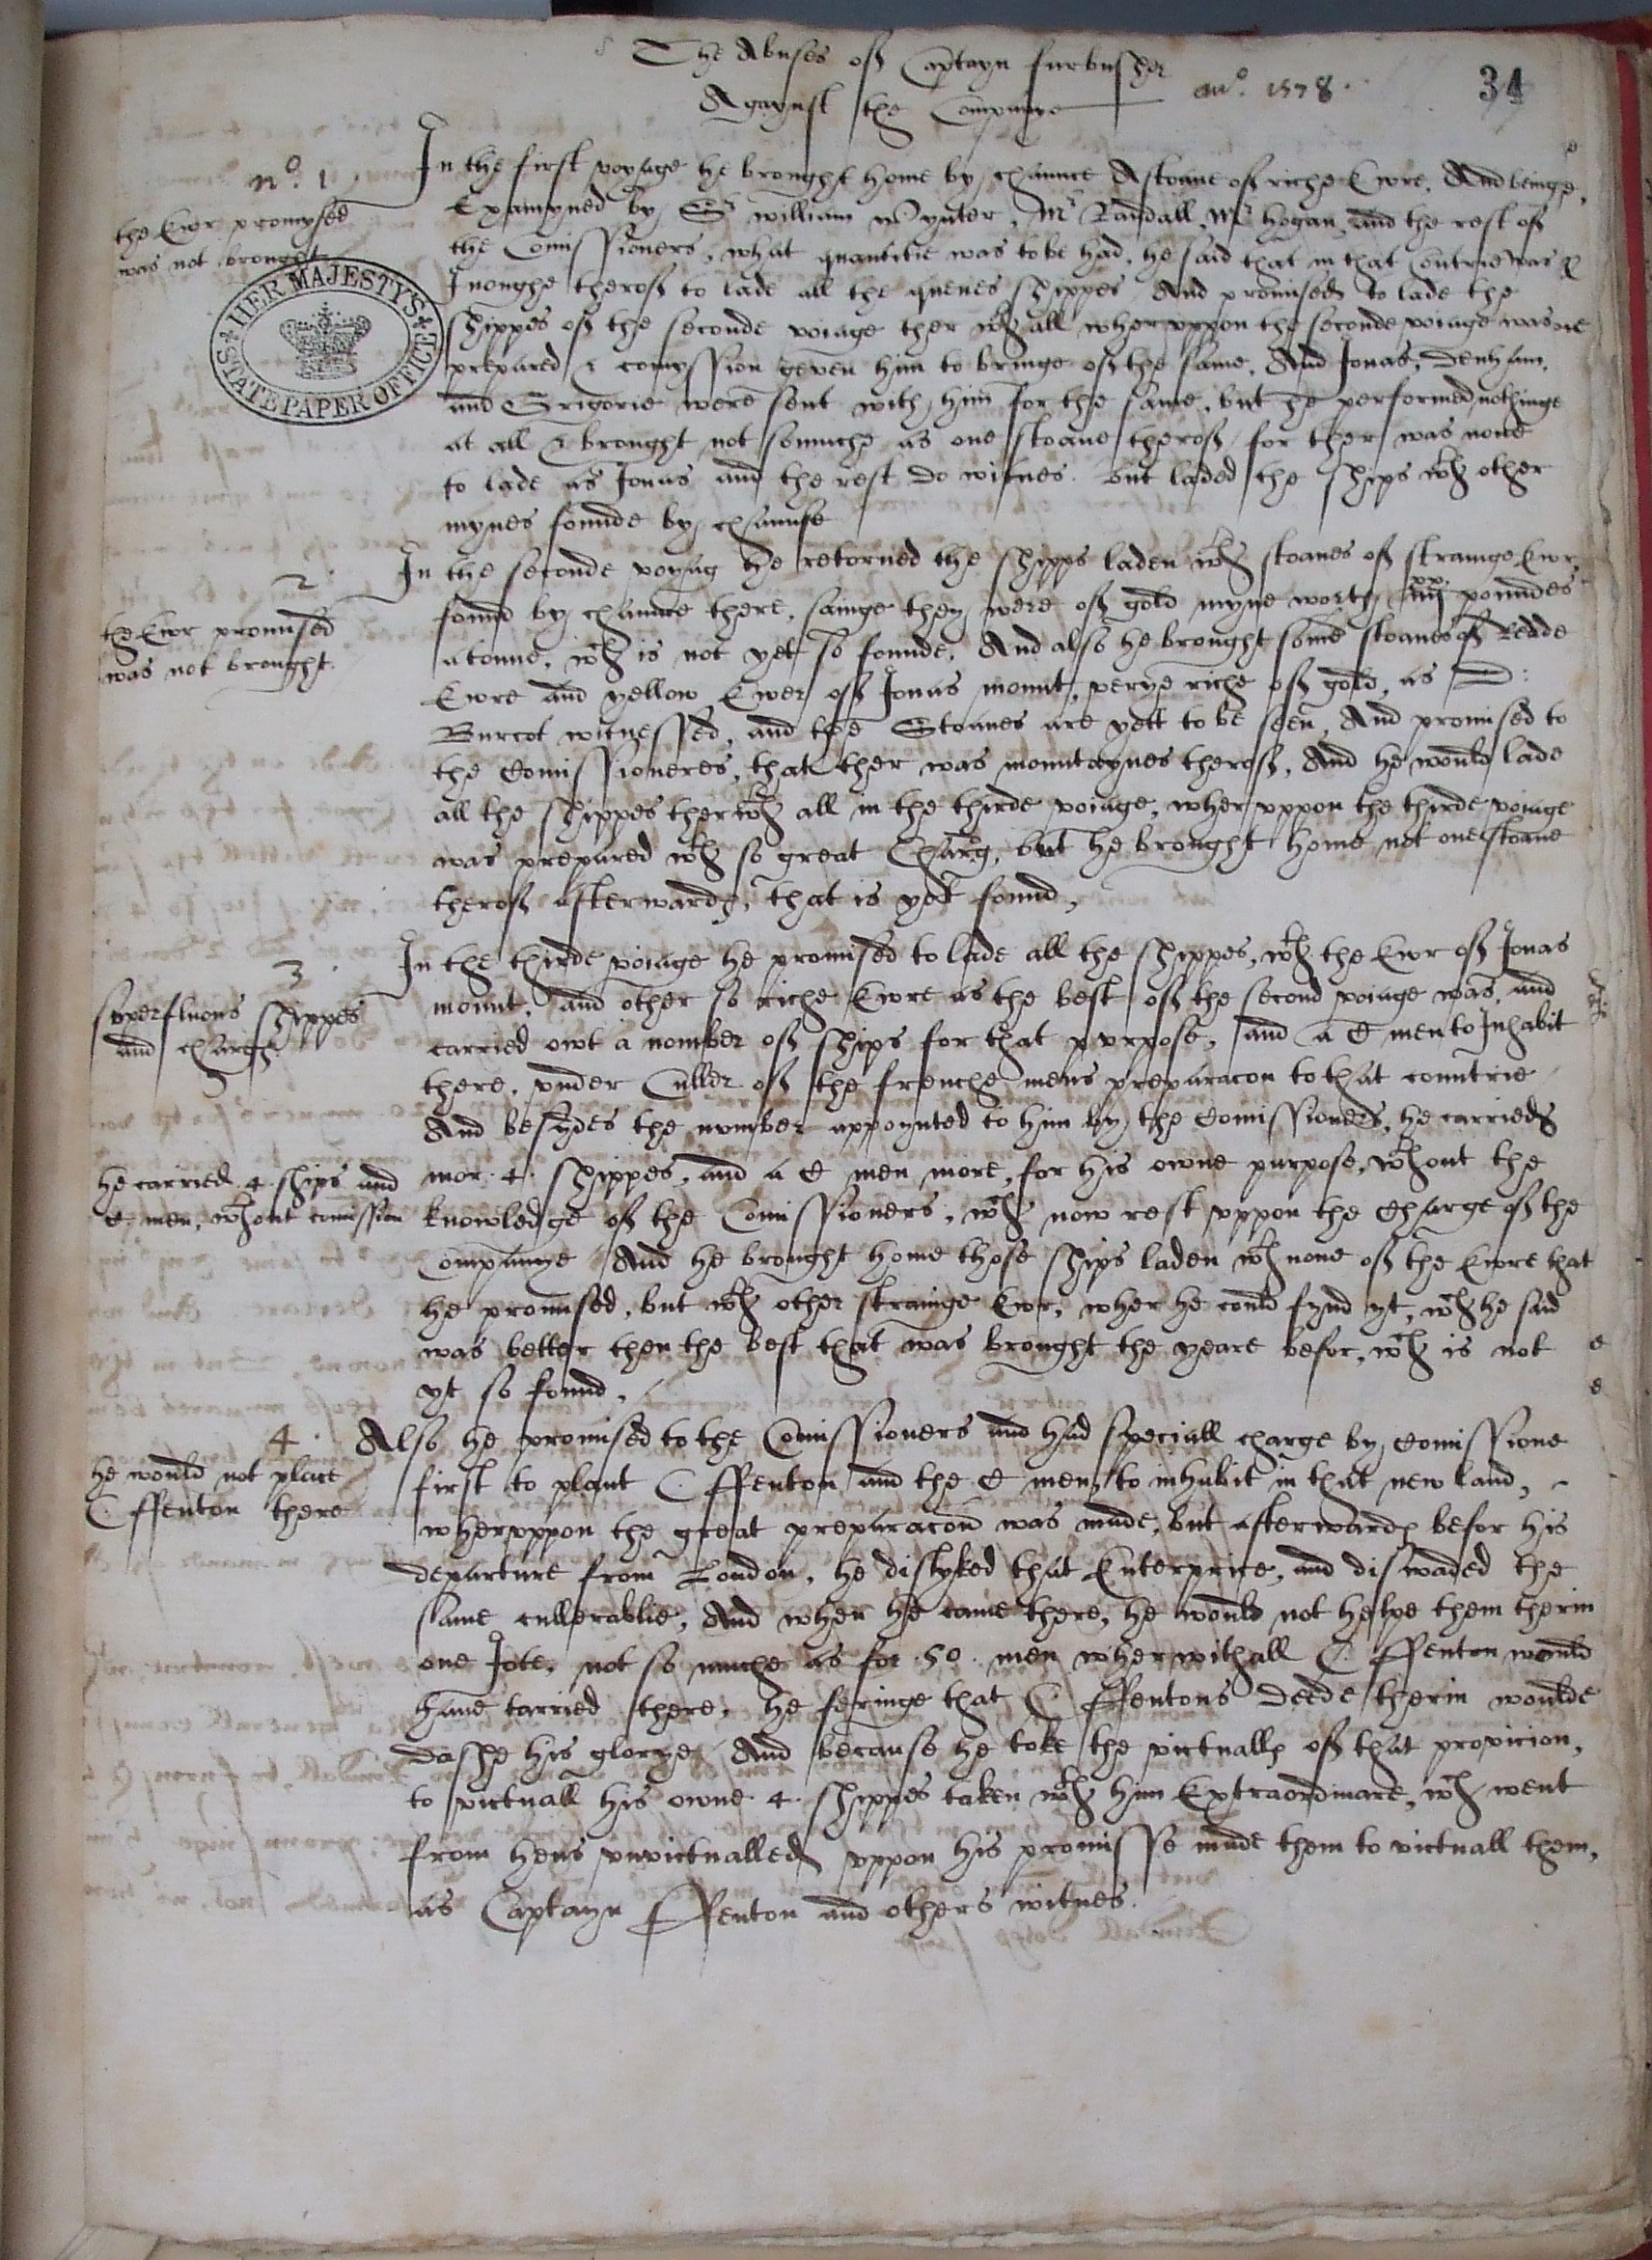 The Abuses of Captayn furbusher
Agaynst the Companye ano. 1578.
34
no. 1
the Ewr promysed
was not brought
HER MAJESTY'S
STATE PAPER OFFICE
In the first voyage he brought home by chaunce A stoane of riche Ewre. And beinge
Examyned by Sr william wynter, Mr Randall, Mr hogan, and the rest of
the Comissioners, what quantitie was to be had, he said that in that Contrie was
Inoughe therof to lade all the quenes shippes And promised to lade the
shippes of the seconde voiage ther wth all wheruppon the seconde voiage was
prepared & comyssion geven him to bringe of the same, And Jonas, Denham,
and Grigorie were sent with him for the same, but he performed nothinge
at all & brought not somuche as one stoane therof, for ther was none
to lade as Jonas and the rest do witnes. but laded the ships wth other
mynes founde by chaunse
2
the Ewr promised
was not brought.
In the seconde voyag he retorned the shipps laden wth stoanes of strainge Ewr,
found by chaunce there, sainge they were of gold myne worth iiijxx poundes
a tonne, wch is not yet so founde, And also he brought some stoanes of Reade
Ewre and yellow Ewer of Jonas mount, verye riche of gold, as D:
Burcot witnessed, and the Stoanes are yett to be seen, And promised to
the Comissioneres, that ther was mountaynes therof, And he would lade
all the shippes therwth all in the thirde voiage, wheruppon the thirde voiage
was prepared wth so great Charg, but he brought home not one stoane
therof afterwards, that is yet found,
3
superfluous shippes
and charge
In the thirde voiage he promised to lade all the shippes, wth the Ewr of Jonas
mount, and other so riche Ewre as the best of the second voiage was, and
carried owt a nomber of ships for that purpose, and a C men to Inhabit
there, under Culler of the frenche mens preparacon to that countrie
And besydes the number appoynted to him by the Comissioners, he carried
he carried 4 ships and
C. men, wthout comission
mor 4 shippes, and a C men more, for his owne purpose, wthout the
knowledge of the Comissioners, wch now rest uppon the Charge of the
Companye And he brought home those ships laden wth none of the Ewre that
he promised, but wth other strainge Ewr, wher he could fynd yt, wch he said
was better then the best that was brought the yeare befor, wch is not
yt so found.
4
he would not place
C. ffenton there
Also he promised to the Comissioners and had speciall charge by Comissione
first to plant C. ffenton and the C men, to inhabit in that new land,
wheruppon the great preparacon was made, but afterwards befor his
departure from London, he dislyked that Enterprice, and diswaded the
same cullerablie, And when he came there, he would not helpe them therin
one Jote, not so muche as for 50 men wherwithall C. ffenton would
have tarried there, he feringe that C ffentons Deede therin woulde
Dashe his glorye And because he toke the victualls of that provicion,
to victuall his owne 4 shippes taken wth him Extraordinare, wch went
from hens unvictualled uppon his promisse made them to victuall them,
as Captayn ffenton and others witnes.